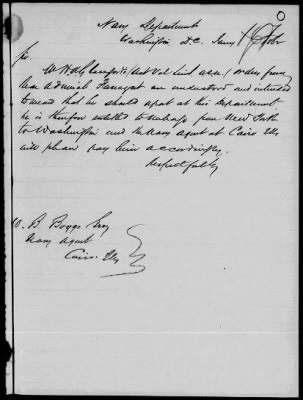 Navy Department
Washington D.C. Jany
Sir,
order from
Rear Admiral Farragut are understood and intended
to mean that he should report at this department
he is therefore entitled to mileage from New York
to Washington and the Navy Agent at Cairo Ills
will please pay him accordingly.
Respectfully
B. Boggs Esq
Navy Agent
Cairo. Ills